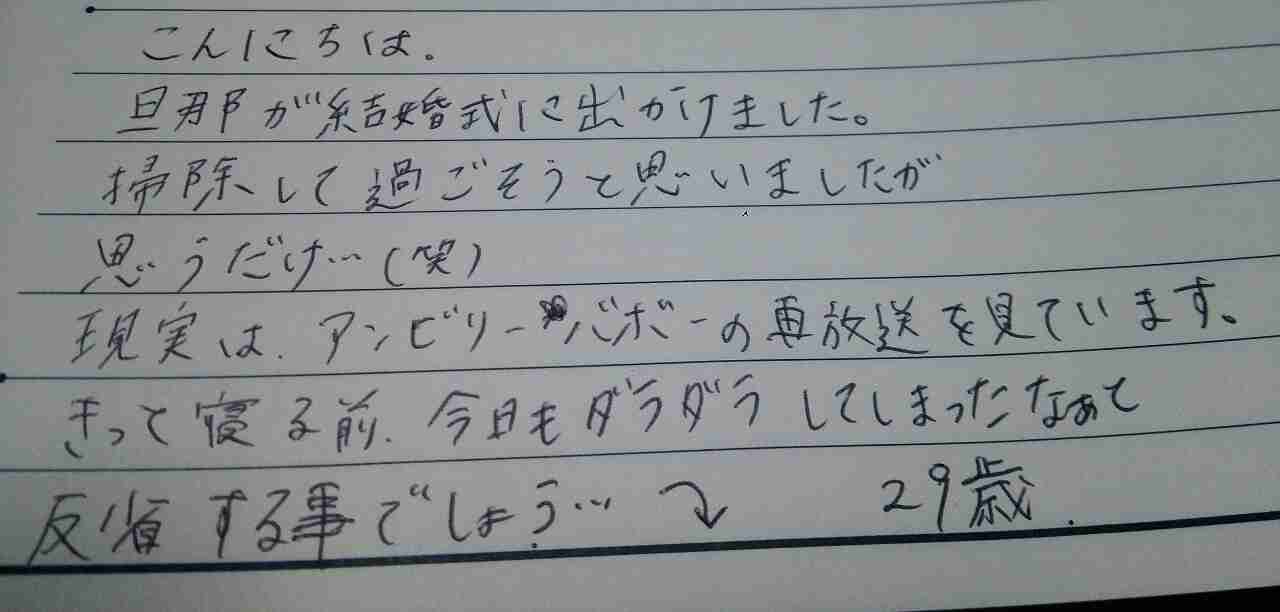 こんにちは。
旦那が結婚式に出かけました。
掃除して過ごそうと思いましたが
思うだけ…(笑)
現実は、アンビリーバボーの再放送を見ています。
きっと寝る前、今日もダラダラしてしまったなぁと
反省する事でしょう… 29歳.